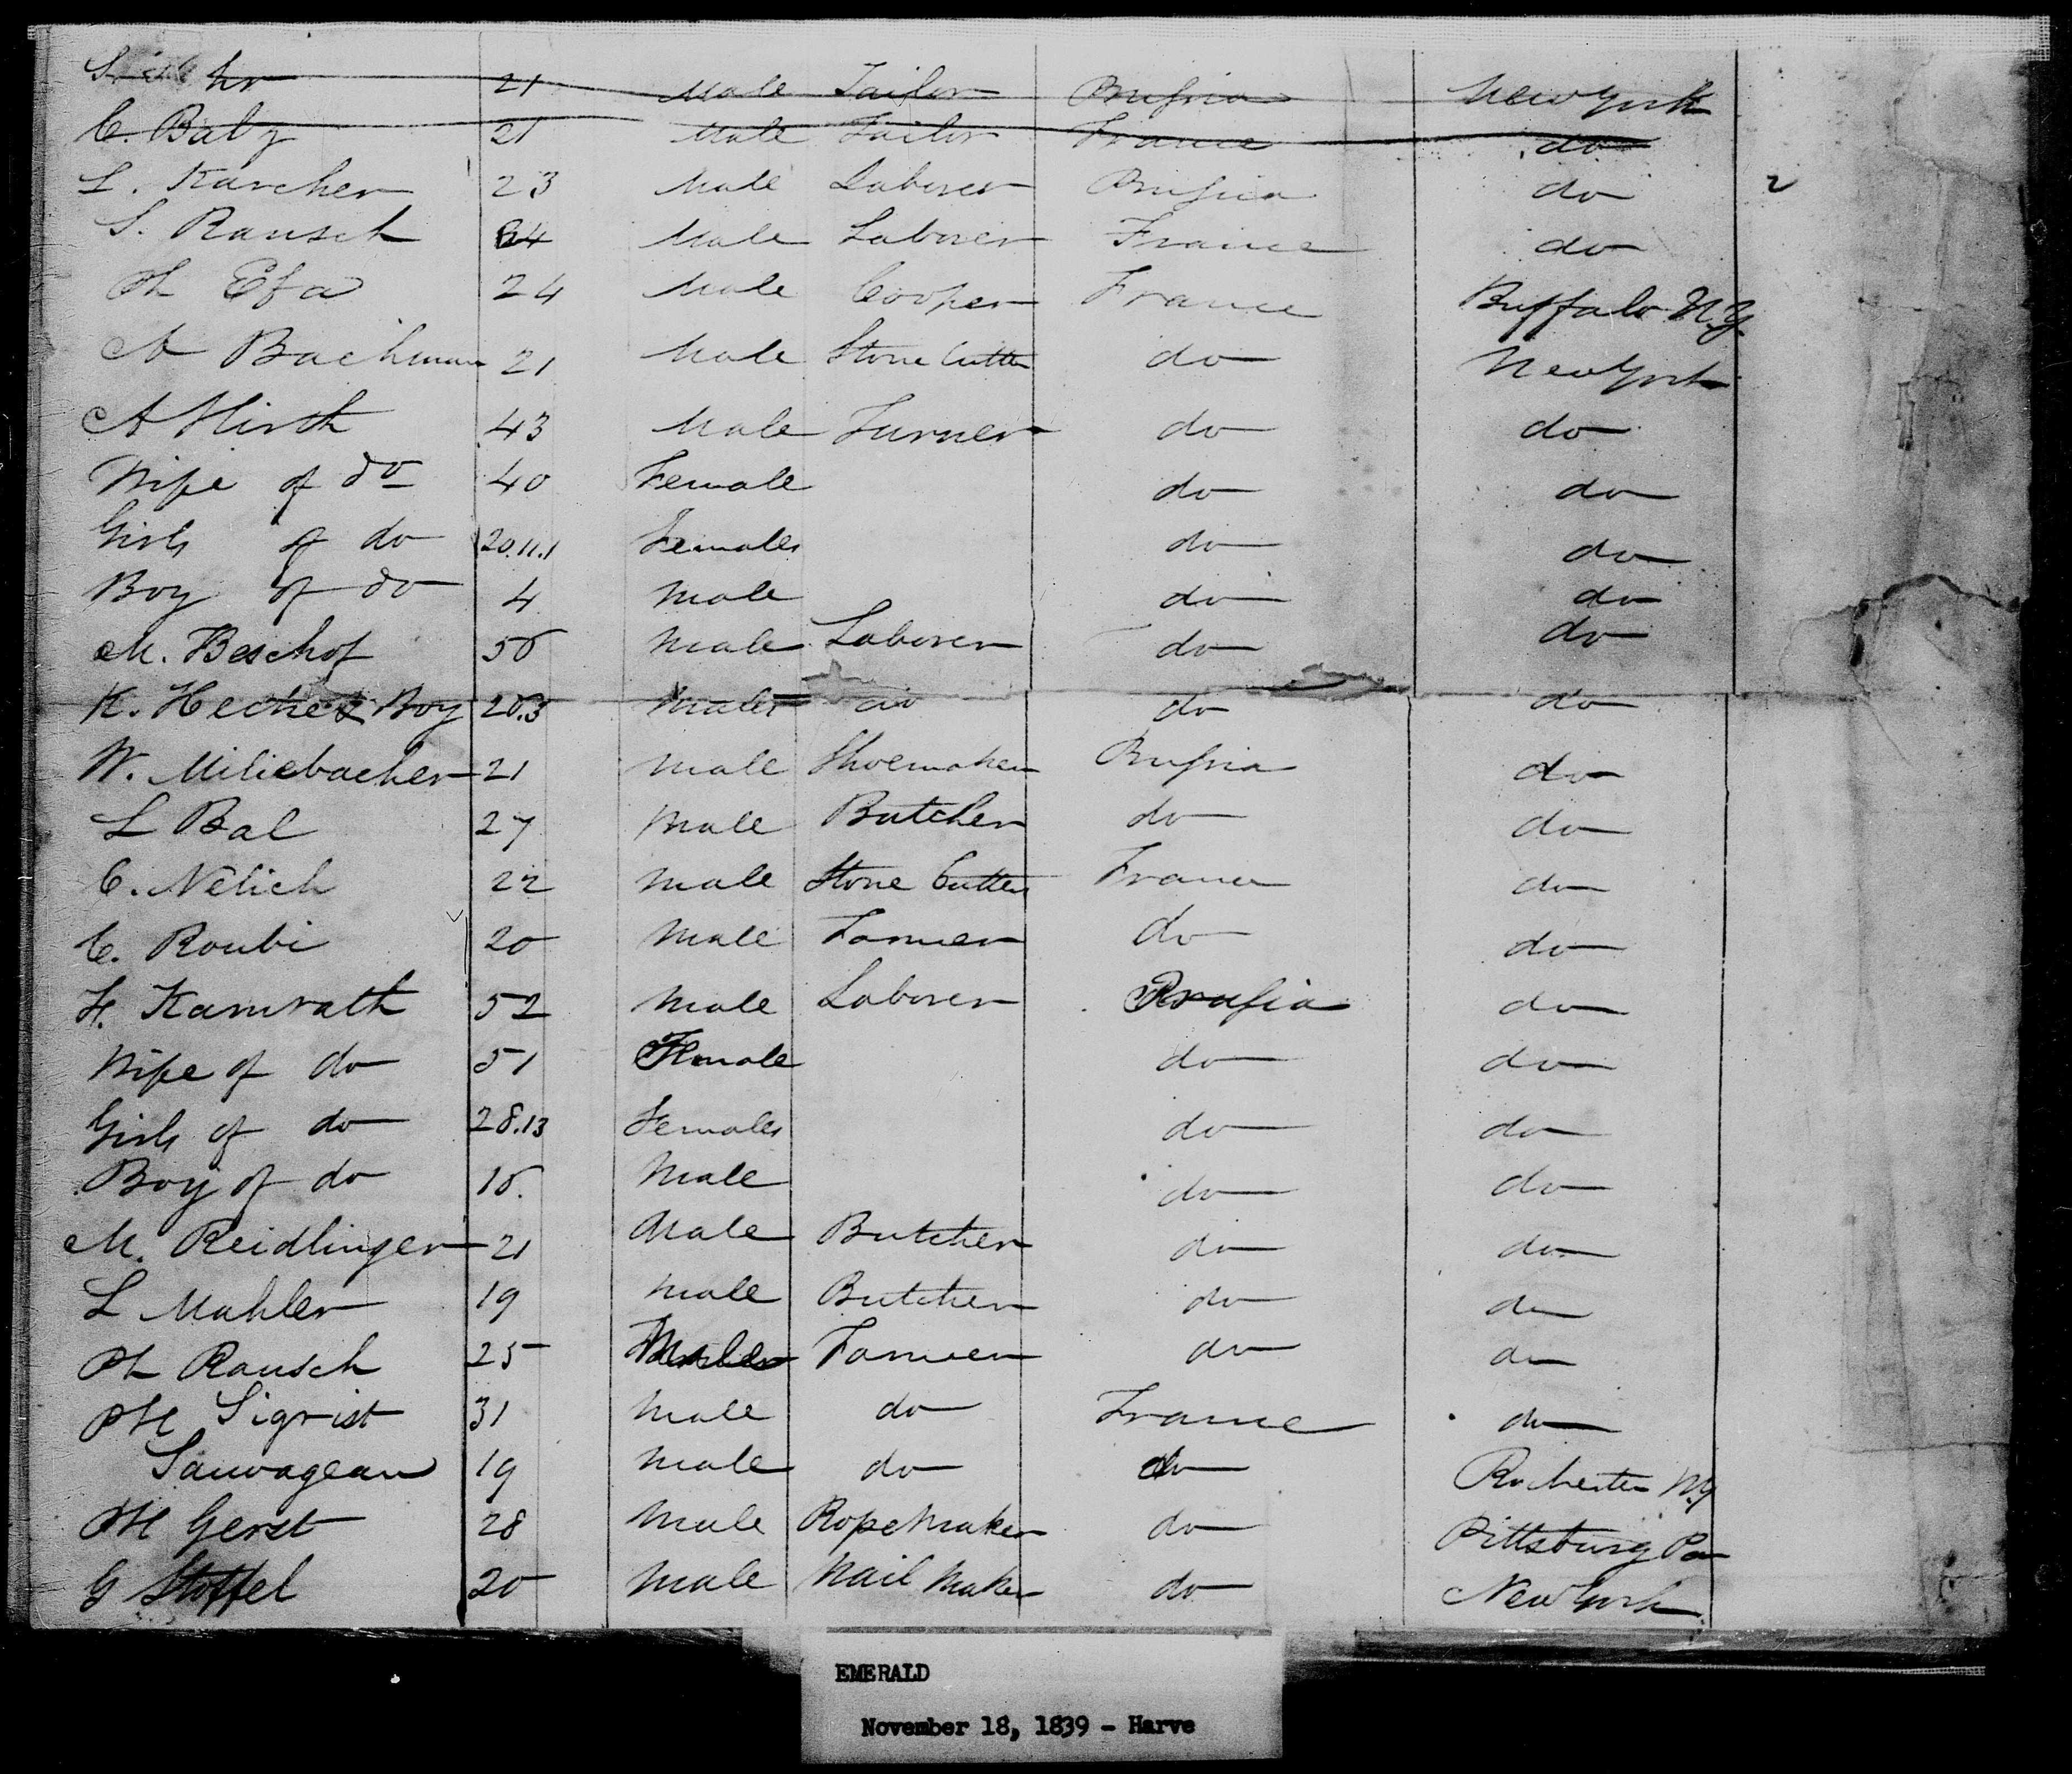 21 Male Tailor Prussia New York
C. Baly 21 Male Tailor France do
L. Karcher 23 Male Laborer Prussia do 2
S. Rausch 24 Male Laborer France do
Ph Efa 24 Male Cooper France Buffalo N.Y
A Bachman 21 Male Stone Cutter do New York
A Hirth 43 Male Turner do do
Wife of do 40 Female do do
Girls of do 20.11.1 Females do do
Boy of do 4 Male do do
M. Beschof 50 Male Laborer do do
K. Hecker Boy 28.3 Males do do do
W. Miliebacher 21 Male Shoemaker Prussia do
L Bal 27 Male Butcher do do
C. Nelich 22 Male Stone Cutter France do
C. Roubi 20 Male Farmer do do
H. Kamrath 52 Male Laborer Prussia do
Wife of do 51 Female do do
Girls of do 28.13 Females do do
Boy of do 18. Male do do
M. Reidlinger 21 Male Butcher do do
L Mahler 19 Male Butcher do do
Ph Rausch 25 Male Farmer do do
M Sigrist 31 Male do France do
Sauvageau 19 Male do do Rochester N.Y
M Gerst 28 Male Rope Maker do Pittsburg Pa
G Stoffel 20 Male Nail Maker do New York
EMERALD
November 18, 1839 - Harve